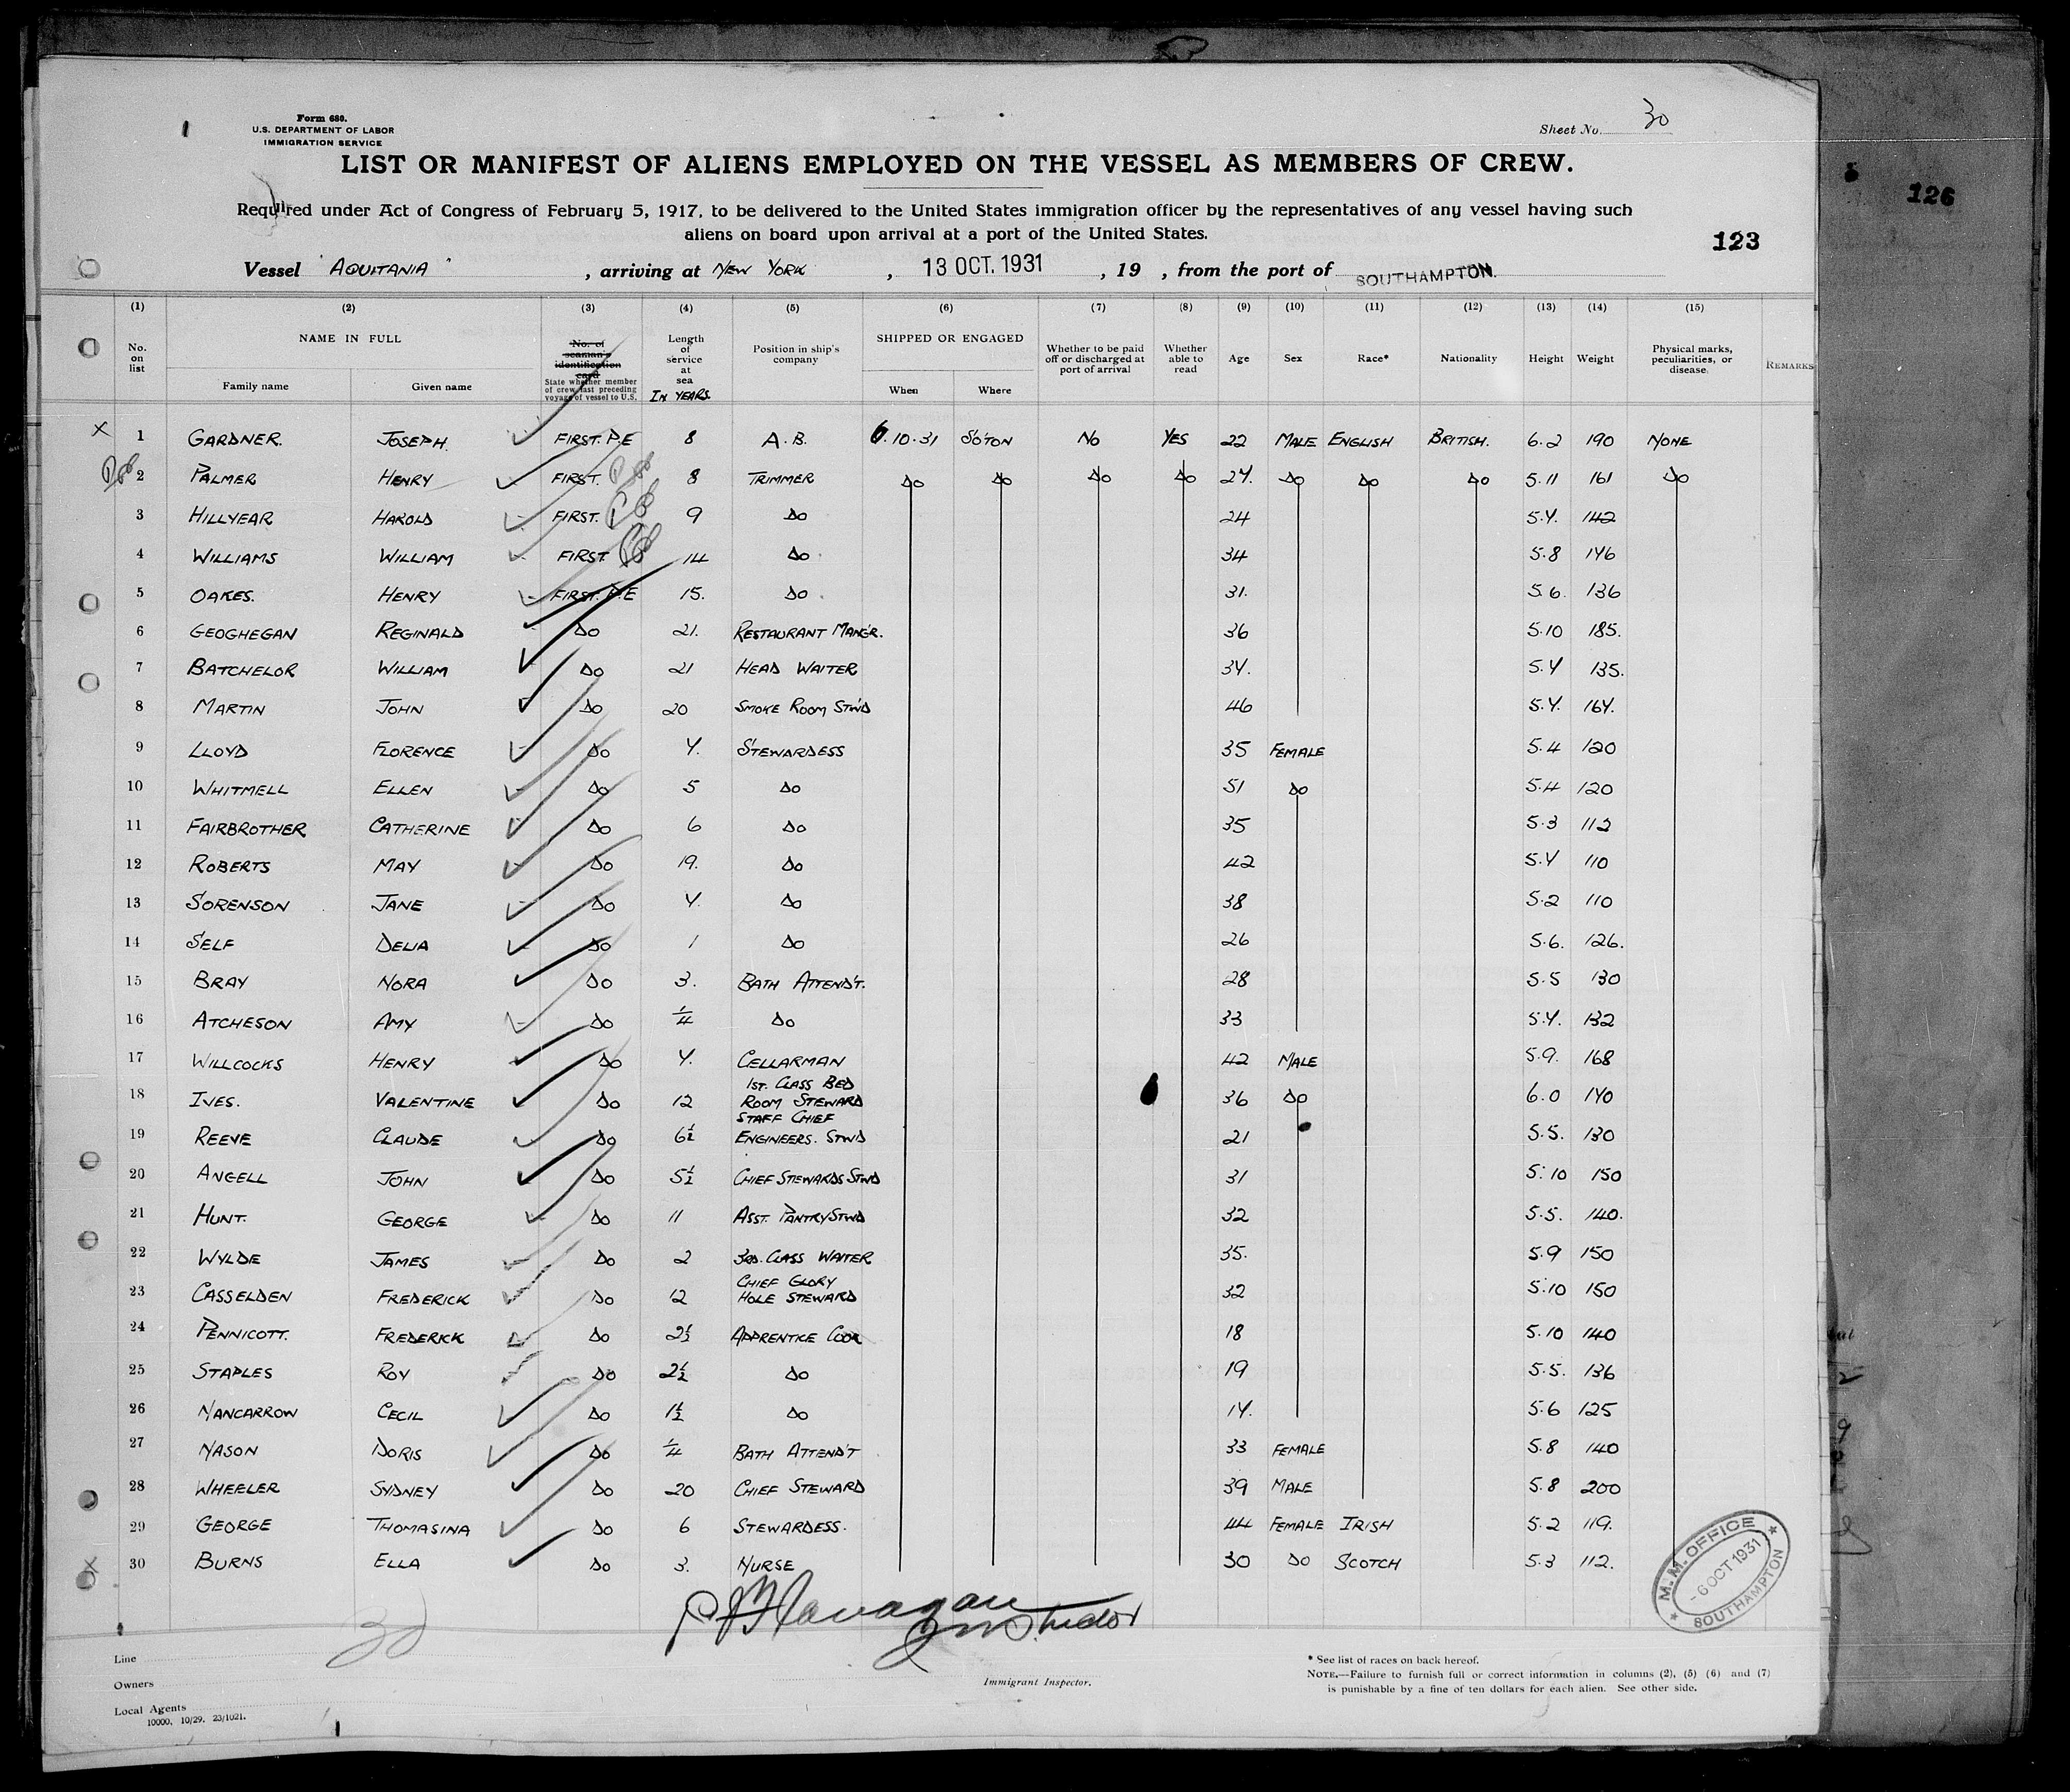 Form 680.
U.S. DEPARTMENT OF LABOR
IMMIGRATION SERVICE
Sheet No. 30
LIST OR MANIFEST OF ALIENS EMPLOYED ON THE VESSEL AS MEMBERS OF CREW.
Required under Act of Congress of February 5, 1917, to be delivered to the United States immigration officer by the representatives of any vessel having such
aliens on board upon arrival at a port of the United States.
126
123
Vessel "AQUITANIA", arriving at NEW YORK, 13 OCT. 1931, 19 , from the port of SOUTHAMPTON.
(1) (2) (3) (4) (5) (6) (7) (8) (9) (10) (11) (12) (13) (14) (15)
No. on list NAME IN FULL Family name Given name No. of seaman's identification card State whether member of crew last preceding voyage of vessel to U.S. Length of service at sea IN YEARS. Position in ship's company SHIPPED OR ENGAGED When Where Whether to be paid off or discharged at port of arrival Whether able to read Age Sex Race* Nationality Height Weight Physical marks, peculiarities, or disease. REMARKS
X 1 GARDNER. JOSEPH. FIRST. P.E 8 A.B. 6.10.31 SO'TON NO YES 22 MALE ENGLISH BRITISH. 6.2 190 NONE
2 PALMER HENRY FIRST. 8 TRIMMER DO DO DO DO 27. DO DO DO 5.11 161 DO
3 HILLYEAR HAROLD FIRST. 9 DO 24 5.7. 142
4 WILLIAMS WILLIAM FIRST. 14 DO 34 5.8 146
5 OAKES. HENRY FIRST. P.E 15. DO. 31. 5.6. 136
6 GEOGHEGAN REGINALD DO 21. RESTAURANT MANG'R. 36 5.10 185.
7 BATCHELOR WILLIAM DO 21 HEAD WAITER 37. 5.7 135.
8 MARTIN JOHN DO 20 SMOKE ROOM STW'D 46 5.7. 167.
9 LLOYD FLORENCE DO 7. STEWARDESS 35 FEMALE 5.4 120
10 WHITMELL ELLEN DO 5 DO 51 DO 5.4 120
11 FAIRBROTHER CATHERINE DO 6 DO 35 5.3 112
12 ROBERTS MAY DO 19. DO 42 5.7 110
13 SORENSON JANE DO 7. DO 38 5.2 110
14 SELF DELIA DO 1 DO 26 5.6. 126.
15 BRAY NORA DO 3. BATH ATTEND'T. 28 5.5 130
16 ATCHESON AMY DO 1/4 DO 33 5.7. 132
17 WILLCOCKS HENRY DO 7. CELLARMAN 42 MALE 5.9. 168
18 IVES. VALENTINE DO 12 1ST. CLASS BED ROOM STEWARD 36 DO 6.0 170
19 REEVE CLAUDE DO 6½ STAFF CHIEF ENGINEERS. STWD 21 5.5. 130
20 ANGELL JOHN DO 5½ CHIEF STEWARDS STWD 31 5.10 150
21 HUNT. GEORGE DO 11 ASST. PANTRY STWD 32 5.5. 140.
22 WYLDE JAMES DO 2 3RD. CLASS WAITER 35. 5.9 150
23 CASSELDEN FREDERICK DO 12 CHIEF GLORY HOLE STEWARD 32 5.10 150
24 PENNICOTT. FREDERICK DO 2½ APPRENTICE COOK 18 5.10 140
25 STAPLES ROY DO 2½ DO 19 5.5. 136
26 NANCARROW CECIL DO 1½ DO 17. 5.6 125
27 NASON DORIS DO 1/4 BATH ATTEND'T 33 FEMALE 5.8 140
28 WHEELER SYDNEY DO 20 CHIEF STEWARD 39 MALE 5.8 200
29 GEORGE THOMASINA DO 6 STEWARDESS. 44 FEMALE IRISH 5.2 119.
X 30 BURNS ELLA DO 3. NURSE 30 DO SCOTCH 5.3 112.
M.M. OFFICE
-6 OCT 1931
SOUTHAMPTON
30
Line
Owners
Local Agents
10000. 10/29. 23/1021.
Immigrant Inspector.
* See list of races on back hereof.
NOTE.—Failure to furnish full or correct information in columns (2), (5) (6) and (7)
is punishable by a fine of ten dollars for each alien. See other side.